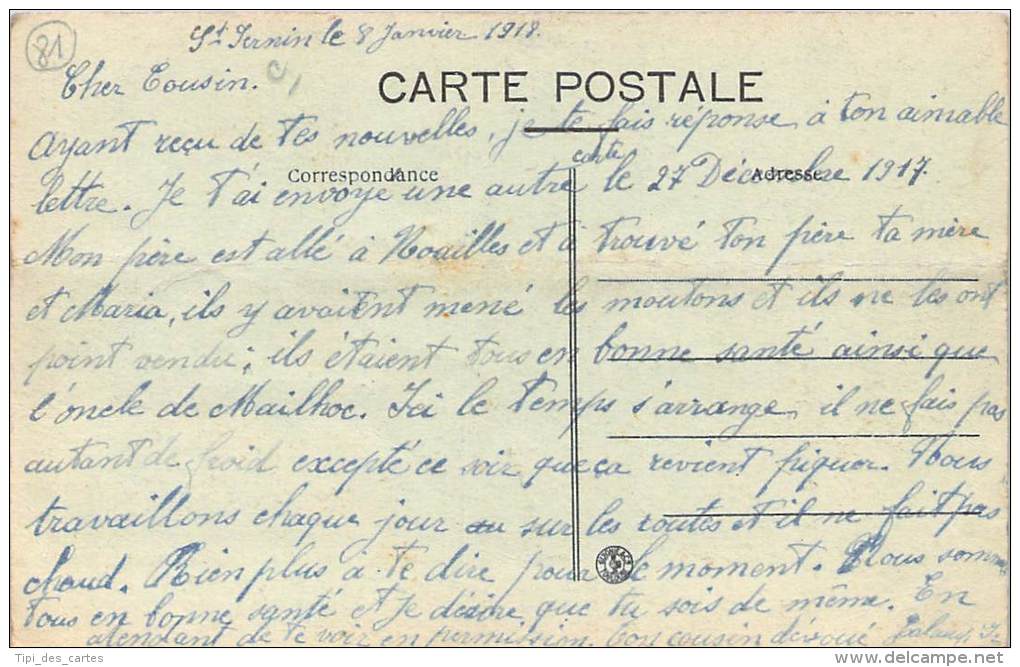 81
St Sernin le 8 Janvier 1918.
Cher Cousin.
CARTE POSTALE
Ayant reçu de tes nouvelles, je te fais réponse à ton aimable
carte
Correspondance
Adresse
lettre. Je t'ai envoyé une autre le 27 Décembre 1917.
Mon père est allé à Noailles et à trouvé ton père ta mère
et Maria, ils y avaient mené les moutons et ils ne les ont
point vendu; ils étaient tous en bonne santé ainsi que
l'oncle de Mailhoc. Ici le temps s'arrange, il ne fais pas
autant de froid excepté ce soir que ça revient piquer. Nous
travaillons chaque jour sur les routes et il ne fait pas
chaud. Rien plus à te dire pour le moment. Nous somme
tous en bonne santé et je désire que tu sois de même. En
atendant de te voir en permission. Ton cousin dévoué
Tipi_des_cartes
delcampe.net